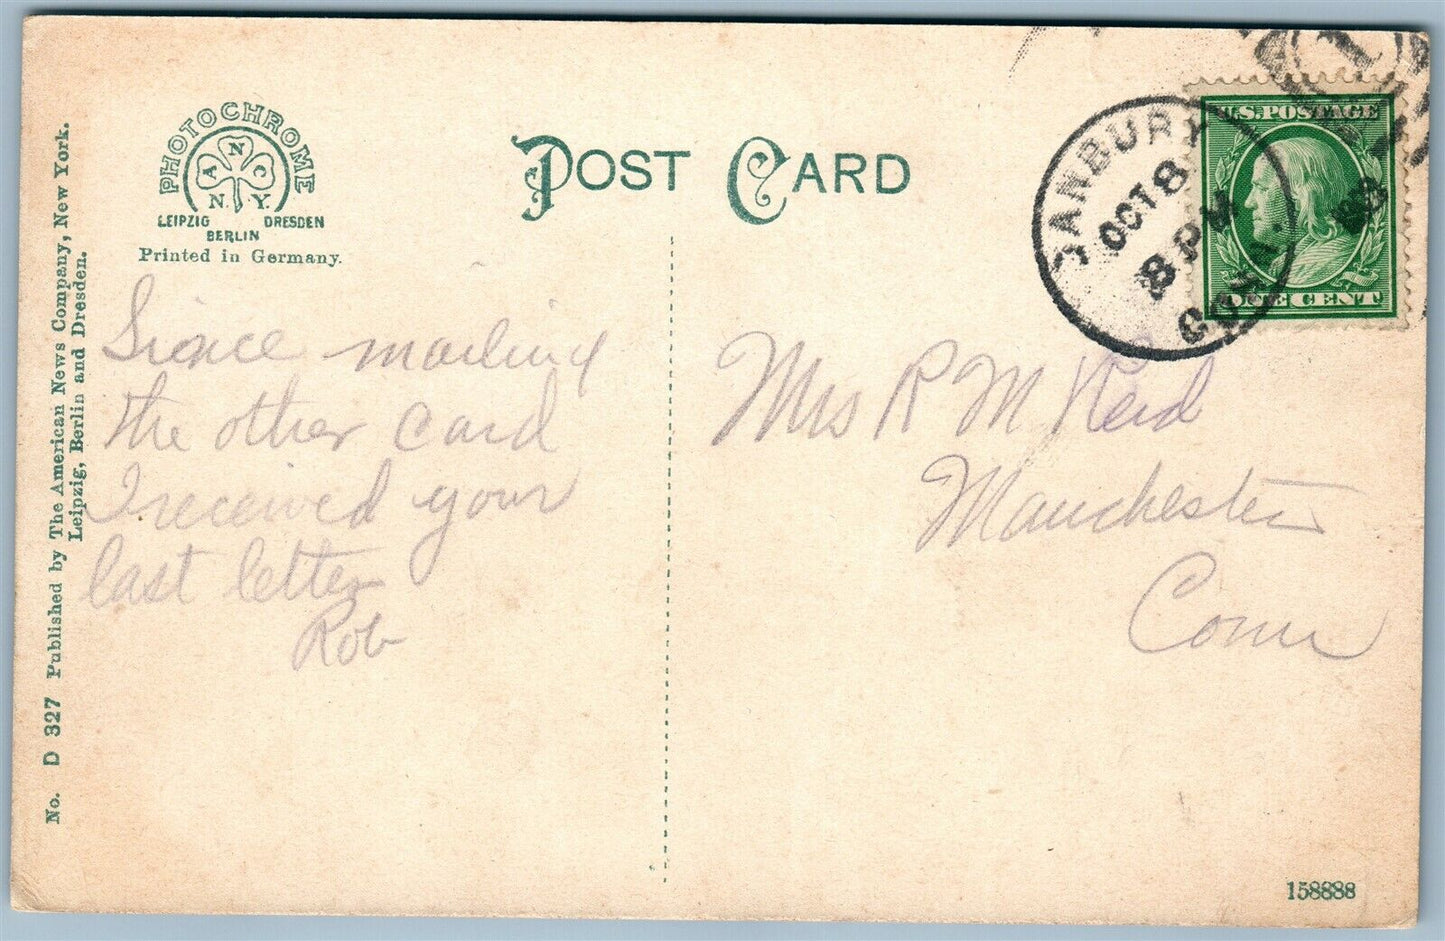 No. D 327 Published by The American News Company, New York.
Leipzig, Berlin and Dresden.
PHOTOCHROME
A N C
N. Y.
LEIPZIG DRESDEN
BERLIN
Printed in Germany.
POST CARD
DANBURY
OCT 8
8 PM
CONN.
1
U.S. POSTAGE
ONE CENT
Since mailing
the other card
I received your
last letter
Rob
Mrs R M Reid
Manchester
Conn
158888